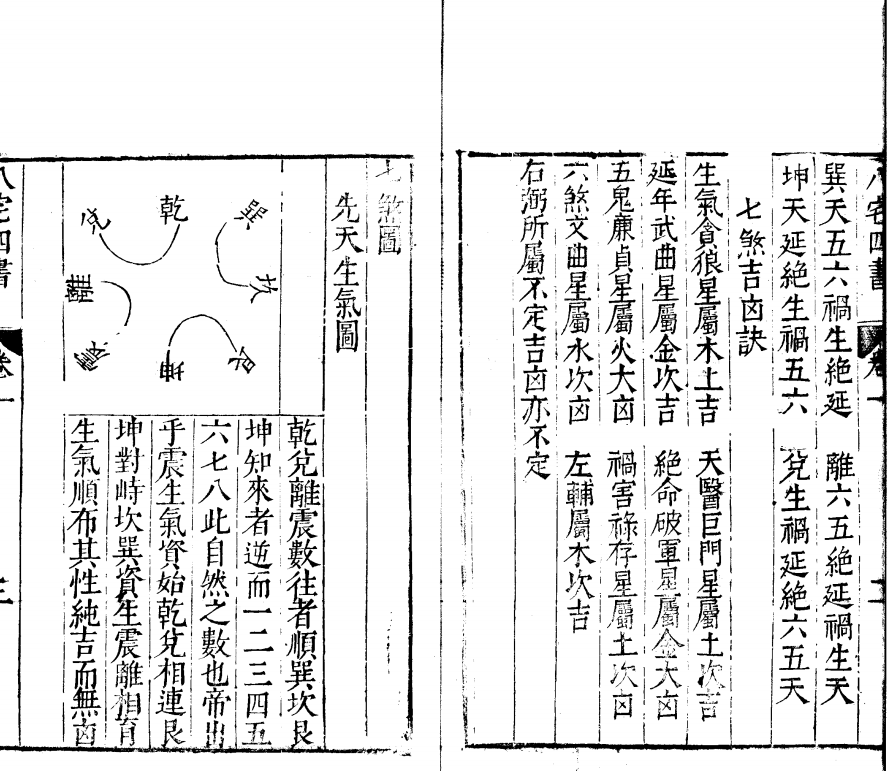 巽天五六禍生絶延　離六五絶延禍生天
坤天延絶生禍五六　兌生禍延絶六五天
七煞吉凶訣
生氣貪狼星屬木上吉　天醫巨門星屬土次吉
延年武曲星屬金次吉　絶命破軍星屬金大凶
五鬼廉貞星屬火大凶　禍害祿存星屬土次凶
六煞文曲星屬水次凶　左輔屬木次吉
右弼所屬不定吉凶亦不定
八宅四書
卷一
七煞圖
先天生氣圖
乾
兌
離
震
巽
坎
艮
坤
乾兌離震數往者順巽坎艮
坤知來者逆而一二三四五
六七八此自然之數也帝出
乎震生氣資始乾兌相連艮
坤對峙坎巽資生震離相育
生氣順布其性純吉而無凶
八宅四書
卷一
三